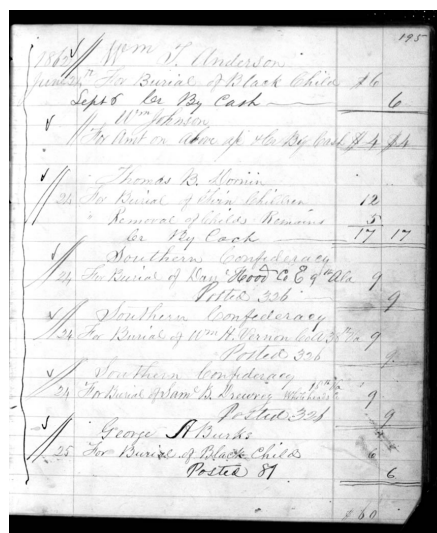 195
1862 Wm T. Anderson
June 24th For Burial of Black Child $6
Sept 8 Cr By Cash 6
Wm Johnson
For Amt on above up & Cr By Cash $4 $4
Thomas B.
24 For Burial of Children 12
" Removal of Childs Remains 5
Cr By Cash 17 17
Southern Confederacy
24 For Burial of Hood Co E 9th Ala 9
Posted 326 9
Southern Confederacy
24 For Burial of Wm H. Vernon 9
Posted 326 9
Southern Confederacy
24 For Burial of Saml B. 9
Posted 326 9
George A Burks
25 For Burial of Black Child 6
Posted 81 6
$60